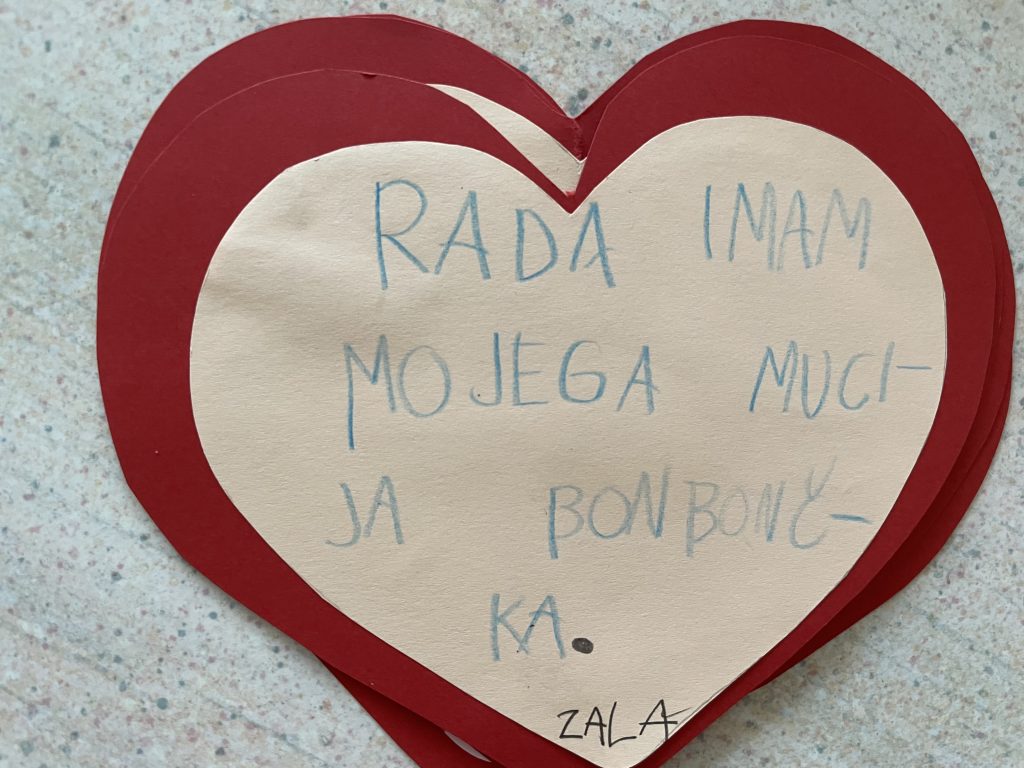 RADA IMAM
MOJEGA MUCI-
JA BONBONČ-
KA.
ZALA